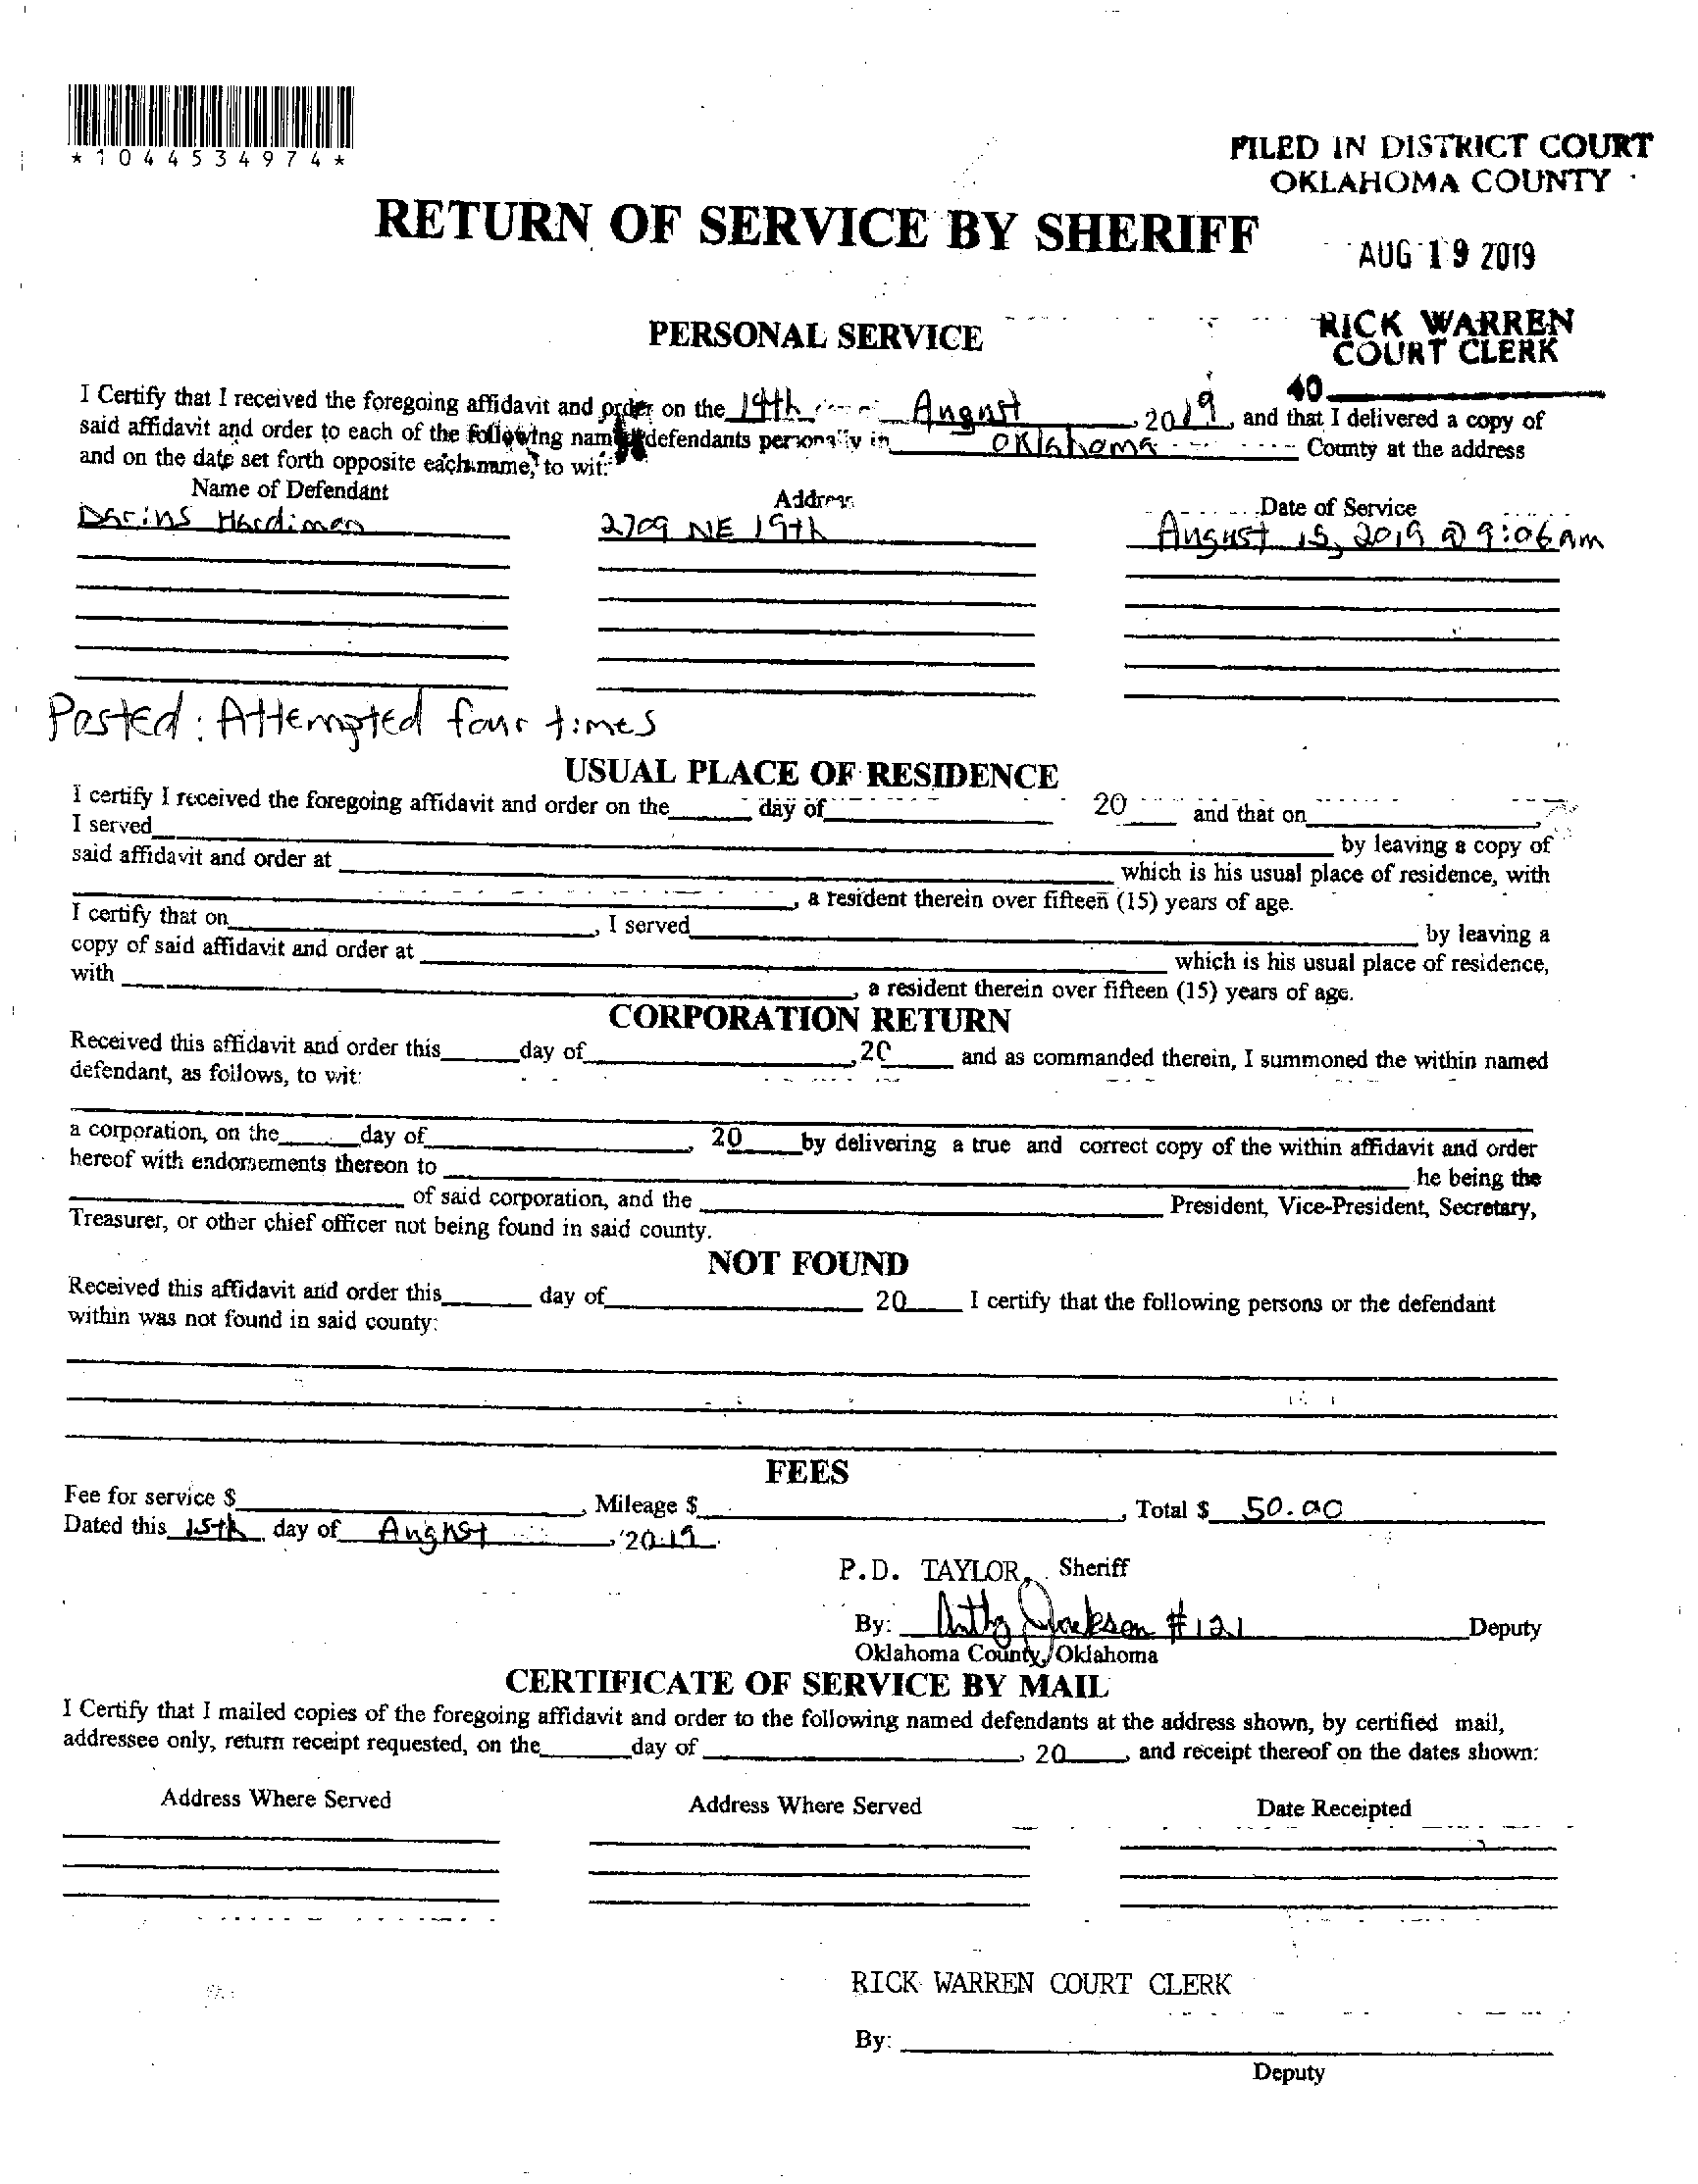 *1044534974*
FILED IN DISTRICT COURT
OKLAHOMA COUNTY
RETURN OF SERVICE BY SHERIFF
AUG 19 2019
PERSONAL SERVICE
RICK WARREN
COURT CLERK
40
I Certify that I received the foregoing affidavit and order on the 14th August, 2019, and that I delivered a copy of
said affidavit and order to each of the following named defendants personally in Oklahoma County at the address
and on the date set forth opposite each name, to wit:
Name of Defendant Address Date of Service
Darius Hardiman 2709 NE 19th August 15, 2019 @ 9:06 Am
Posted: Attempted four times
USUAL PLACE OF RESIDENCE
I certify I received the foregoing affidavit and order on the day of 20 and that on,
I served by leaving a copy of
said affidavit and order at which is his usual place of residence, with
, a resident therein over fifteen (15) years of age.
I certify that on, I served by leaving a
copy of said affidavit and order at which is his usual place of residence,
with, a resident therein over fifteen (15) years of age.
CORPORATION RETURN
Received this affidavit and order this day of, 20 and as commanded therein, I summoned the within named
defendant, as follows, to wit:
a corporation, on the day of, 20 by delivering a true and correct copy of the within affidavit and order
hereof with endorsements thereon to he being the
of said corporation, and the President, Vice-President, Secretary,
Treasurer, or other chief officer not being found in said county.
NOT FOUND
Received this affidavit and order this day of 20 I certify that the following persons or the defendant
within was not found in said county:
FEES
Fee for service $, Mileage $, Total $ 50.00
Dated this 15th day of August, 2019.
P.D. TAYLOR, Sheriff
By: Jackson #121 Deputy
Oklahoma County, Oklahoma
CERTIFICATE OF SERVICE BY MAIL
I Certify that I mailed copies of the foregoing affidavit and order to the following named defendants at the address shown, by certified mail,
addressee only, return receipt requested, on the day of, 20, and receipt thereof on the dates shown:
Address Where Served Address Where Served Date Receipted
RICK WARREN COURT CLERK
By:
Deputy